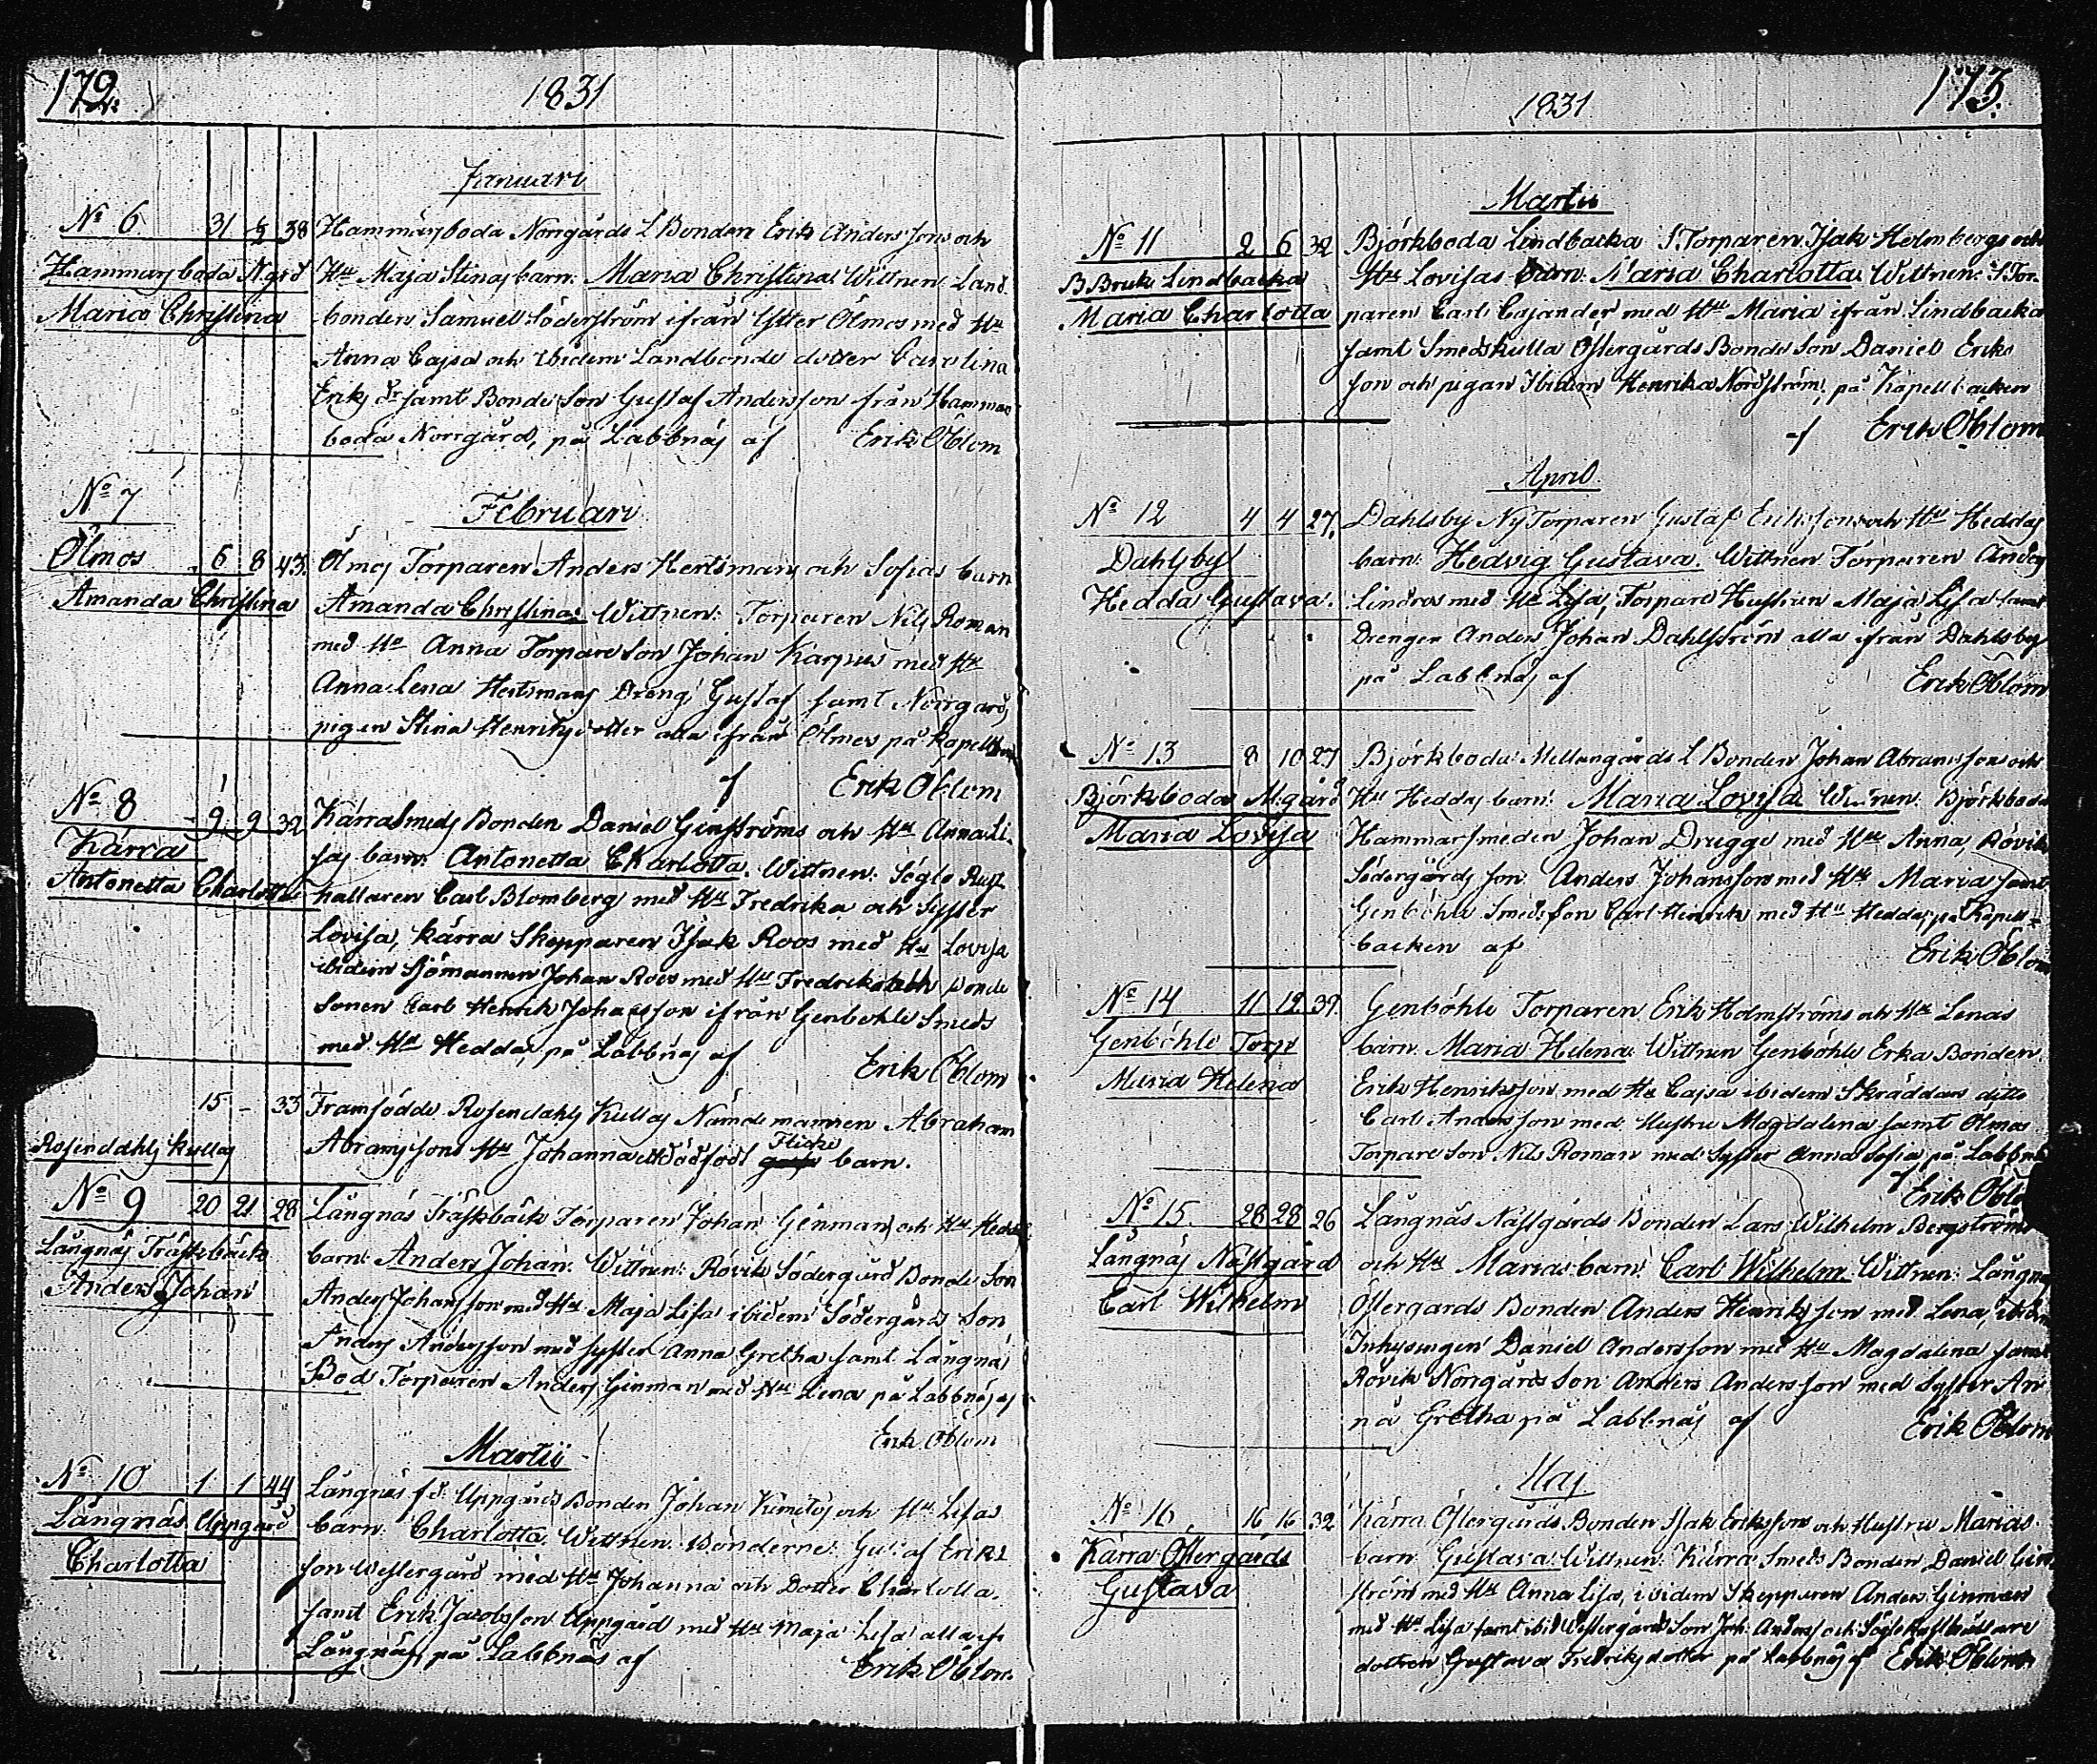 172.
1831
Januari
No 6 31 2/2 38 Hammarsboda Norrgårds L Bonden Erik Anders sons och
Hammarsboda N.grd Hu Maja Stinas barn: Maria Christina Wittnen: Land
Maria Christina bonden Samuel Söderström ifrån Ytter Ölmos med Hu
Anna Cajsa och ibidem Landbonde dotter Carolina
Eriks dr samt Bonde Son Gustaf Andersson från Hammars
boda Norrgård, på Labbnäs af Erik Öblom
No 7
Februari
Ölmos 6 8 43. Ölmos Torparen Anders Hertsmans och Sofias barn
Amanda Christina Amanda Christina: Wittnen: Torparen Nils Roman
med Hu Anna Torpare Son Johan Karpus med Hu
Anna Lena Hertsmans Dreng Gustaf samt Norrgårds
pigan Stina Henriksdotter alla ifrån Ölmos på Kapellbn
af Erik Öblom
No 8 9 9 32 Kärra Smeds Bonden Daniel Genströms och Hu Anna Li-
Kärra sas barn: Antonetta Charlotta. Wittnen: Söglo Rust
Antonetta Charlotta hallaren Carl Blomberg med Hu Fredrika och Syster
Lovisa, Kärra Skepparen Isak Roos med Hu Lovisa
ibidem Sjömannen Johan Roos med Hu Fredrika och Bonde
Sonen Carl Henrik Johansson ifrån Genböhle Smeds
med Hu Hedda, på Labbnäs af Erik Öblom
15 – 33 Framfödde Rosendahls Kullas Nämdemannen Abraham
Rosendahls Kullas Abramssons Hu Johanna ett dödfödt Flicke barn.
No 9 20 21 28 Långnäs Träskbäck Torparen Johan Ginmans och Hu Heddas
Långnäs Träskbäck barn: Anders Johan: Wittnen: Rövik Södergård Bonde Son
Anders Johan Anders Johansson med Hu Maja Lisa ibidem Södergårds Son
Anders Andersson med syster Anna Gretha samt Långnäs
Bod Torparen Anders Ginman med Hu Lena på Labbnäs af
Erik Öblom
Martii
No 10 1 1 44 Långnäs fd: Uppgårds Bonden Johan Kimitos och Hu Lisas
Långnäs Uppgård barn: Charlotta. Wittnen: Bönderne: Gustaf Eriks
Charlotta son Westergård med Hu Johanna och Dotter Charlotta.
samt Erik Jacobsson Uppgård med Hu Maja Lisa alla if
Långnäs, på Labbnäs af Erik Öblom.
1831
173.
Martii
No 11 2 6 32 Björkboda Lindbacka S. Torparen Isak Holmbergs och
B Bruk Lindbacka Hu Lovisas barn: Maria Charlotta. Wittnen: S Tor-
Maria Charlotta paren Carl Cajander med Hu Maria ifrån Lindbacka
samt Smedskulla Östergårds Bonde Son Daniel Eriks
son och pigan Ibidem Henrika Nordström, på Kapellbacken
af Erik Öblom
April
No 12 4 4 27. Dahlsby Ny Torparen Gustaf Erikssons och Hu Heddas
Dahlsby barn: Hedvig Gustava. Wittnen Torparen Anders
Hedda Gustava. Lindros med Hu Lisa, Torpare Hustrun Maja Lisa samt
Drengen Anders Johan Dahlström alla ifrån Dahlsby
på Labbnäs af Erik Öblom
No 13 8 10 27 Björkboda Mellangårds L Bonden Johan Abramssons och
Björkboda M.gård Hu Heddas barn: Maria Lovisa Wittnen: Björkboda
Maria Lovisa Hammarsmeden Johan Drugge med Hu Anna, Rövik
Södergårds son Anders Johansson med Hu Maria samt
Genböhle Smeds Son Carl Henrik med Hu Hedda, på Kapell-
backen af Erik Öblom
No 14 11 12 39. Genböhle Torparen Erik Holmströms och Hu Lenas
Genböhle Torp barn Maria Helena. Wittnen Genböhle Erka Bonden
Maria Helena Erik Henriksson med Hu Cajsa ibidem Skräddars ditto
Carl Andersson med Hustru Magdalena samt Ölmos
Torpare Son Nils Roman med Syster Anna Sofia på Labbnäs
af Erik Öblom
No 15 28 28 26 Långnäs Nästgårds Bonden Lars Wilhelm Bergströms
Långnäs Nästgård och Hu Marias barn: Carl Wilhelm. Wittnen: Långnäs
Carl Wilhelm Östergards Bonden Anders Henriksson med Lena, ibidem
Inhysingen Daniel Andersson med Hu Magdalena samt
Rövik Norrgårds Son Anders Andersson med Syster An
na Gretha på Labbnäs af Erik Öblom
Maj
No 16 16 16 32 Kärra Östergårds Bonden Isak Erikssons och Hustru Marias
Kärra Östergårds barn Gustava. Wittnen: Kärra Smeds Bonden Daniel Gin
Gustava ström med Hu Anna Lisa, ibidem Skepparen Anders Ginman
med Hu Lisa samt ibid Westergårds Son Joh: Anderss och Söglo Rusthållare
dottren Gustava Fredriksdotter på Labbnäs af Erik Öblom